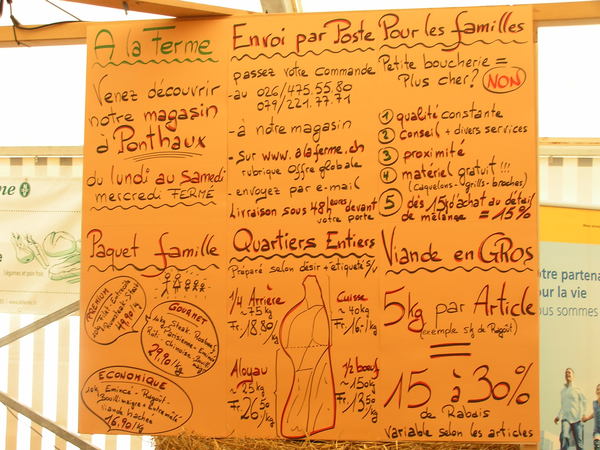 A la Ferme
Venez découvrir
notre magasin
à Ponthaux
du lundi au Samedi
mercredi FERMÉ
Envoi par Poste
passez votre commande
-au 026/475.55.80
079/221.77.71
-à notre magasin
-Sur www.alaferme.ch
rubrique offre globale
-envoyez par e-mail
Livraison sous 48 heures devant
votre porte
Pour les familles
Petite boucherie =
Plus cher? NON
1 qualité constante
2 Conseil + divers services
3 proximité
4 matériel gratuit !!!
(caquelons-grills-broches)
5 dès 15kg d'achat au détail
de mélange = 15%
Paquet famille
PREMIUM
Filet Entrecôte
Rumsteak
49.90/kg
GOURMET
29.90/kg
ECONOMIQUE
10kg Emincé - Ragoût
Bouilli
viande hachée
16.90/kg
Quartiers Entiers
Préparé selon désir + étiqueté s/v
1/4 Arrière
~ 75kg
Fr. 18.80/kg
Cuisse
~ 40kg
Fr. 16.-/kg
Aloyau
~ 25kg
Fr. 26.50/kg
1/2 boeuf
~ 150kg
Fr. 13.50/kg
Viande en GROS
5kg par Article
(exemple 5kg de Ragoût)
=
15 à 30%
de Rabais
variable selon les articles
Légumes et pain frais
otre partena
our la vie
ous sommes